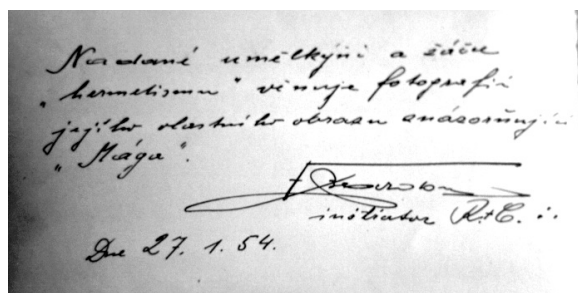 Nadané umělkyni a žáču
„hermetismu“ věnuje fotografii
jejího vlastního obrazu znázorňující
„Mága“.
iniciator R+C. i.
Dne 27. 1. 54.